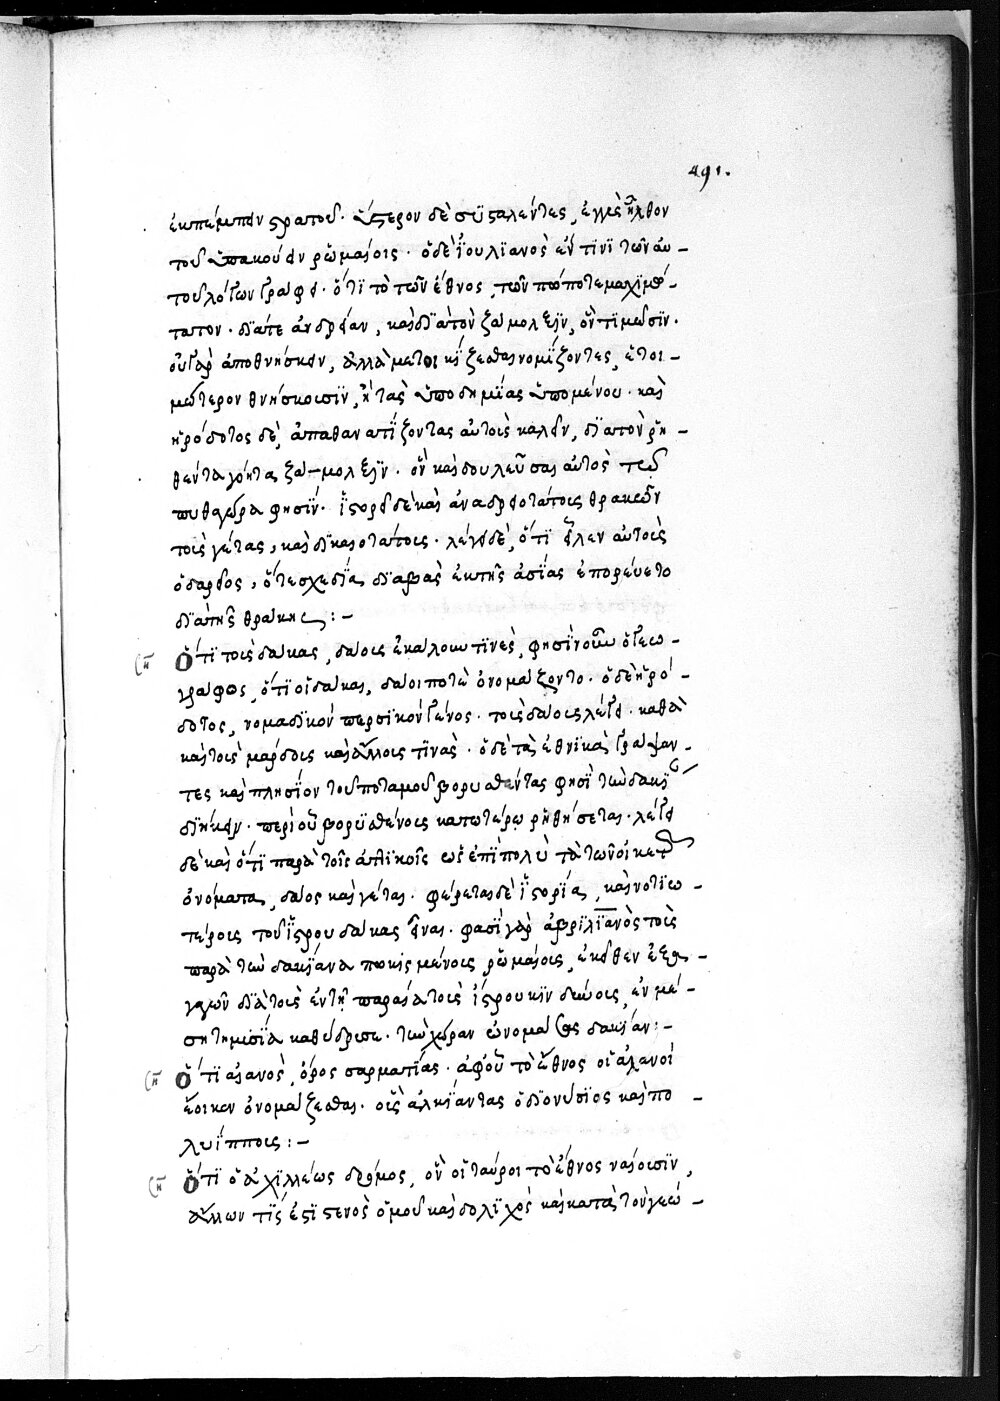 491.
ἐκπέμπειν στρατοῦ. ὕστερον δὲ συσταλέντες, ἐγγὺς ἦλθον
τοῦ ὑπακούειν ῥωμαίοις. ὁ δὲ ἰουλιανὸς ἐν τινὶ τῶν αὐ-
τοῦ λόγων γράφει. ὅτι τὸ γετῶν ἔθνος, τῶν πώποτε μαχιμώ-
τατον. διά τε ἀνδρείαν, καὶ διὰ τὸν ζάμολξιν, ὃν τιμῶσιν.
οὐ γὰρ ἀποθνήσκειν, ἀλλὰ μετοικίζεσθαι νομίζοντες, ἑτοι-
μότερον θνήσκουσιν, ἢ τὰς ἀποδημίας ὑπομένου. καὶ
ἡρόδοτος δὲ, ἀπαθανατίζοντας αὐτοὺς καλεῖν, διὰ τὸν ῥη-
θέντα γόητα ζάμολξιν. ὃν καὶ δουλεῦσαι αὐτὸς τῷ
πυθαγόρα φησίν. ἱστορεῖ δὲ καὶ ἀνδρειοτάτους θρακῶν
τοὺς γέτας, καὶ δικαιοτάτους. λέγει δὲ, ὅτι εἷλεν αὐτοὺς
ὁ δαρεῖος, ὅτε σχεδίᾳ διαβὰς ἐκ τῆς ἀσίας ἐπορεύετο
διὰ τῆς θράκης:-
Ὅτι τοὺς δάκας, δάους ἐκάλουν τινὲς, φησὶν οὖν ὁ γεω-
γράφος, ὅτι οἱ δάκαι, δάοι ποτὲ ὀνομάζοντο. ὁ δὲ ἡρό-
δοτος, νομαδικὸν περσικὸν γένος. τοὺς δάους λέγει. καθὰ
καὶ τοὺς μάρδους καὶ ἄλλους τινάς. ὁ δὲ τὰ ἐθνικὰ γράψαν-
τες καὶ πλησίον τοῦ ποταμοῦ βορυσθένους φησὶ τὴν δακίαν
διήκειν. περὶ οὗ βορυσθένους κατωτέρω ῥηθήσεται. λέγει
δὲ καὶ ὅτι παρὰ τοῖς ἀττικοῖς ὡς ἐπὶ πολὺ τὰ τῶν οἰκετῶν
ὀνόματα, δάος καὶ γέτας. φέρεται δὲ ἱστορία, καὶ νοτιω-
τέρους τοῦ ἴστρου δάκας εἶναι. φασὶ γὰρ αὐρηλιανὸς τοὺς
παρὰ τὴν δακίαν ἀποικισμένους ῥωμαίους, ἐκεῖθεν ἐξα-
γαγὼν διὰ τοὺς ἐν τῇ παραίᾳ τοῦ ἴστρου κινδύνους, ἐν μέ-
σῃ τῇ μυσίᾳ καθίδρυσε. τὴν χώραν ὠνομάσας δακίαν:-
Ὅτι ἀλανὸς, ὄρος σαρματίας. ἀφ' οὗ τὸ ἔθνος οἱ ἀλανοὶ
ἔοικεν ὀνομάζεσθαι. οὓς ἀλκήεντας ὁ διονύσιος καὶ πο-
λυΐππους:-
Ὅτι ὁ ἀχιλλέως δρόμος, ὃν οἱ ταῦροι τὸ ἔθνος ναίουσιν,
αὐλών τίς ἐστι στενὸς ὁμοῦ καὶ δολιχὸς καὶ κατὰ τὸν γεω-